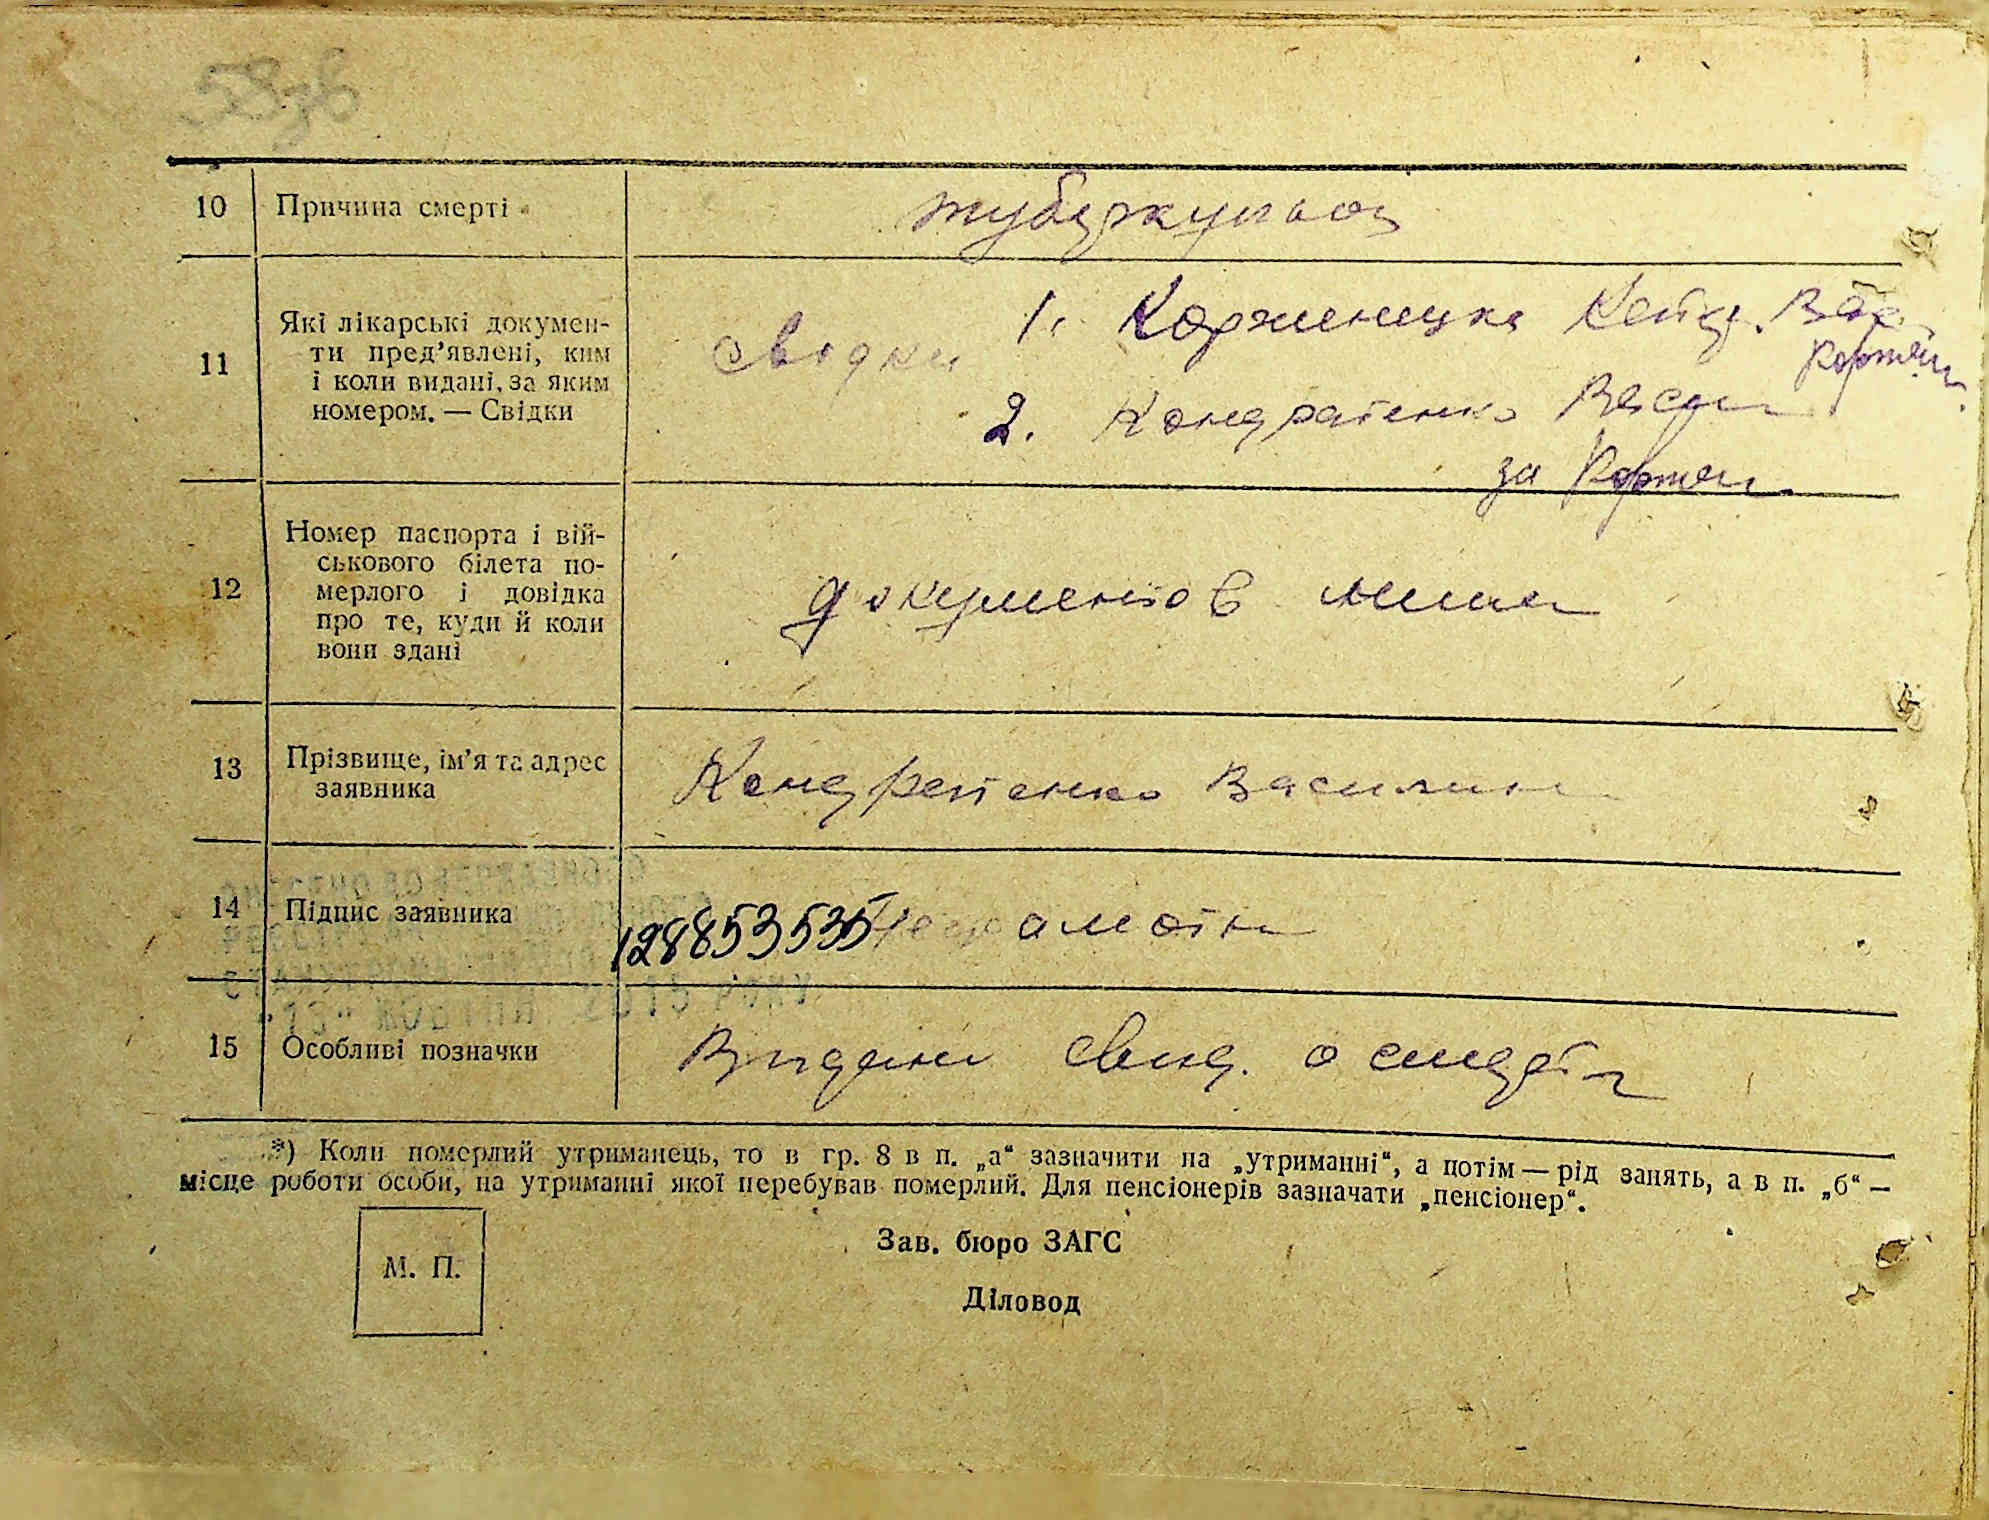 58зв
10 Причина смерті туберкульоз
11 Які лікарські докумен-
ти пред’явлені, ким
і коли видані, за яким
номером. — Свідки
сводки 1. Корженицка
2. Кондратенко
за
12 Номер паспорта і вій-
ськового білета по-
мерлого і довідка
про те, куди й коли
вони здані
документов
13 Прізвище, ім’я та адрес
заявника
Кондратенко Василина
14 Підпис заявника 128853535 Неграмотна
15 Особливі позначки Видани свид. о смерти
*) Коли померлий утриманець, то в гр. 8 в п. „а“ зазначити на „утриманні“, а потім — рід занять, а в п. „б“ —
місце роботи особи, на утриманні якої перебував померлий. Для пенсіонерів зазначати „пенсіонер“.
М. П.
Зав. бюро ЗАГС
Діловод